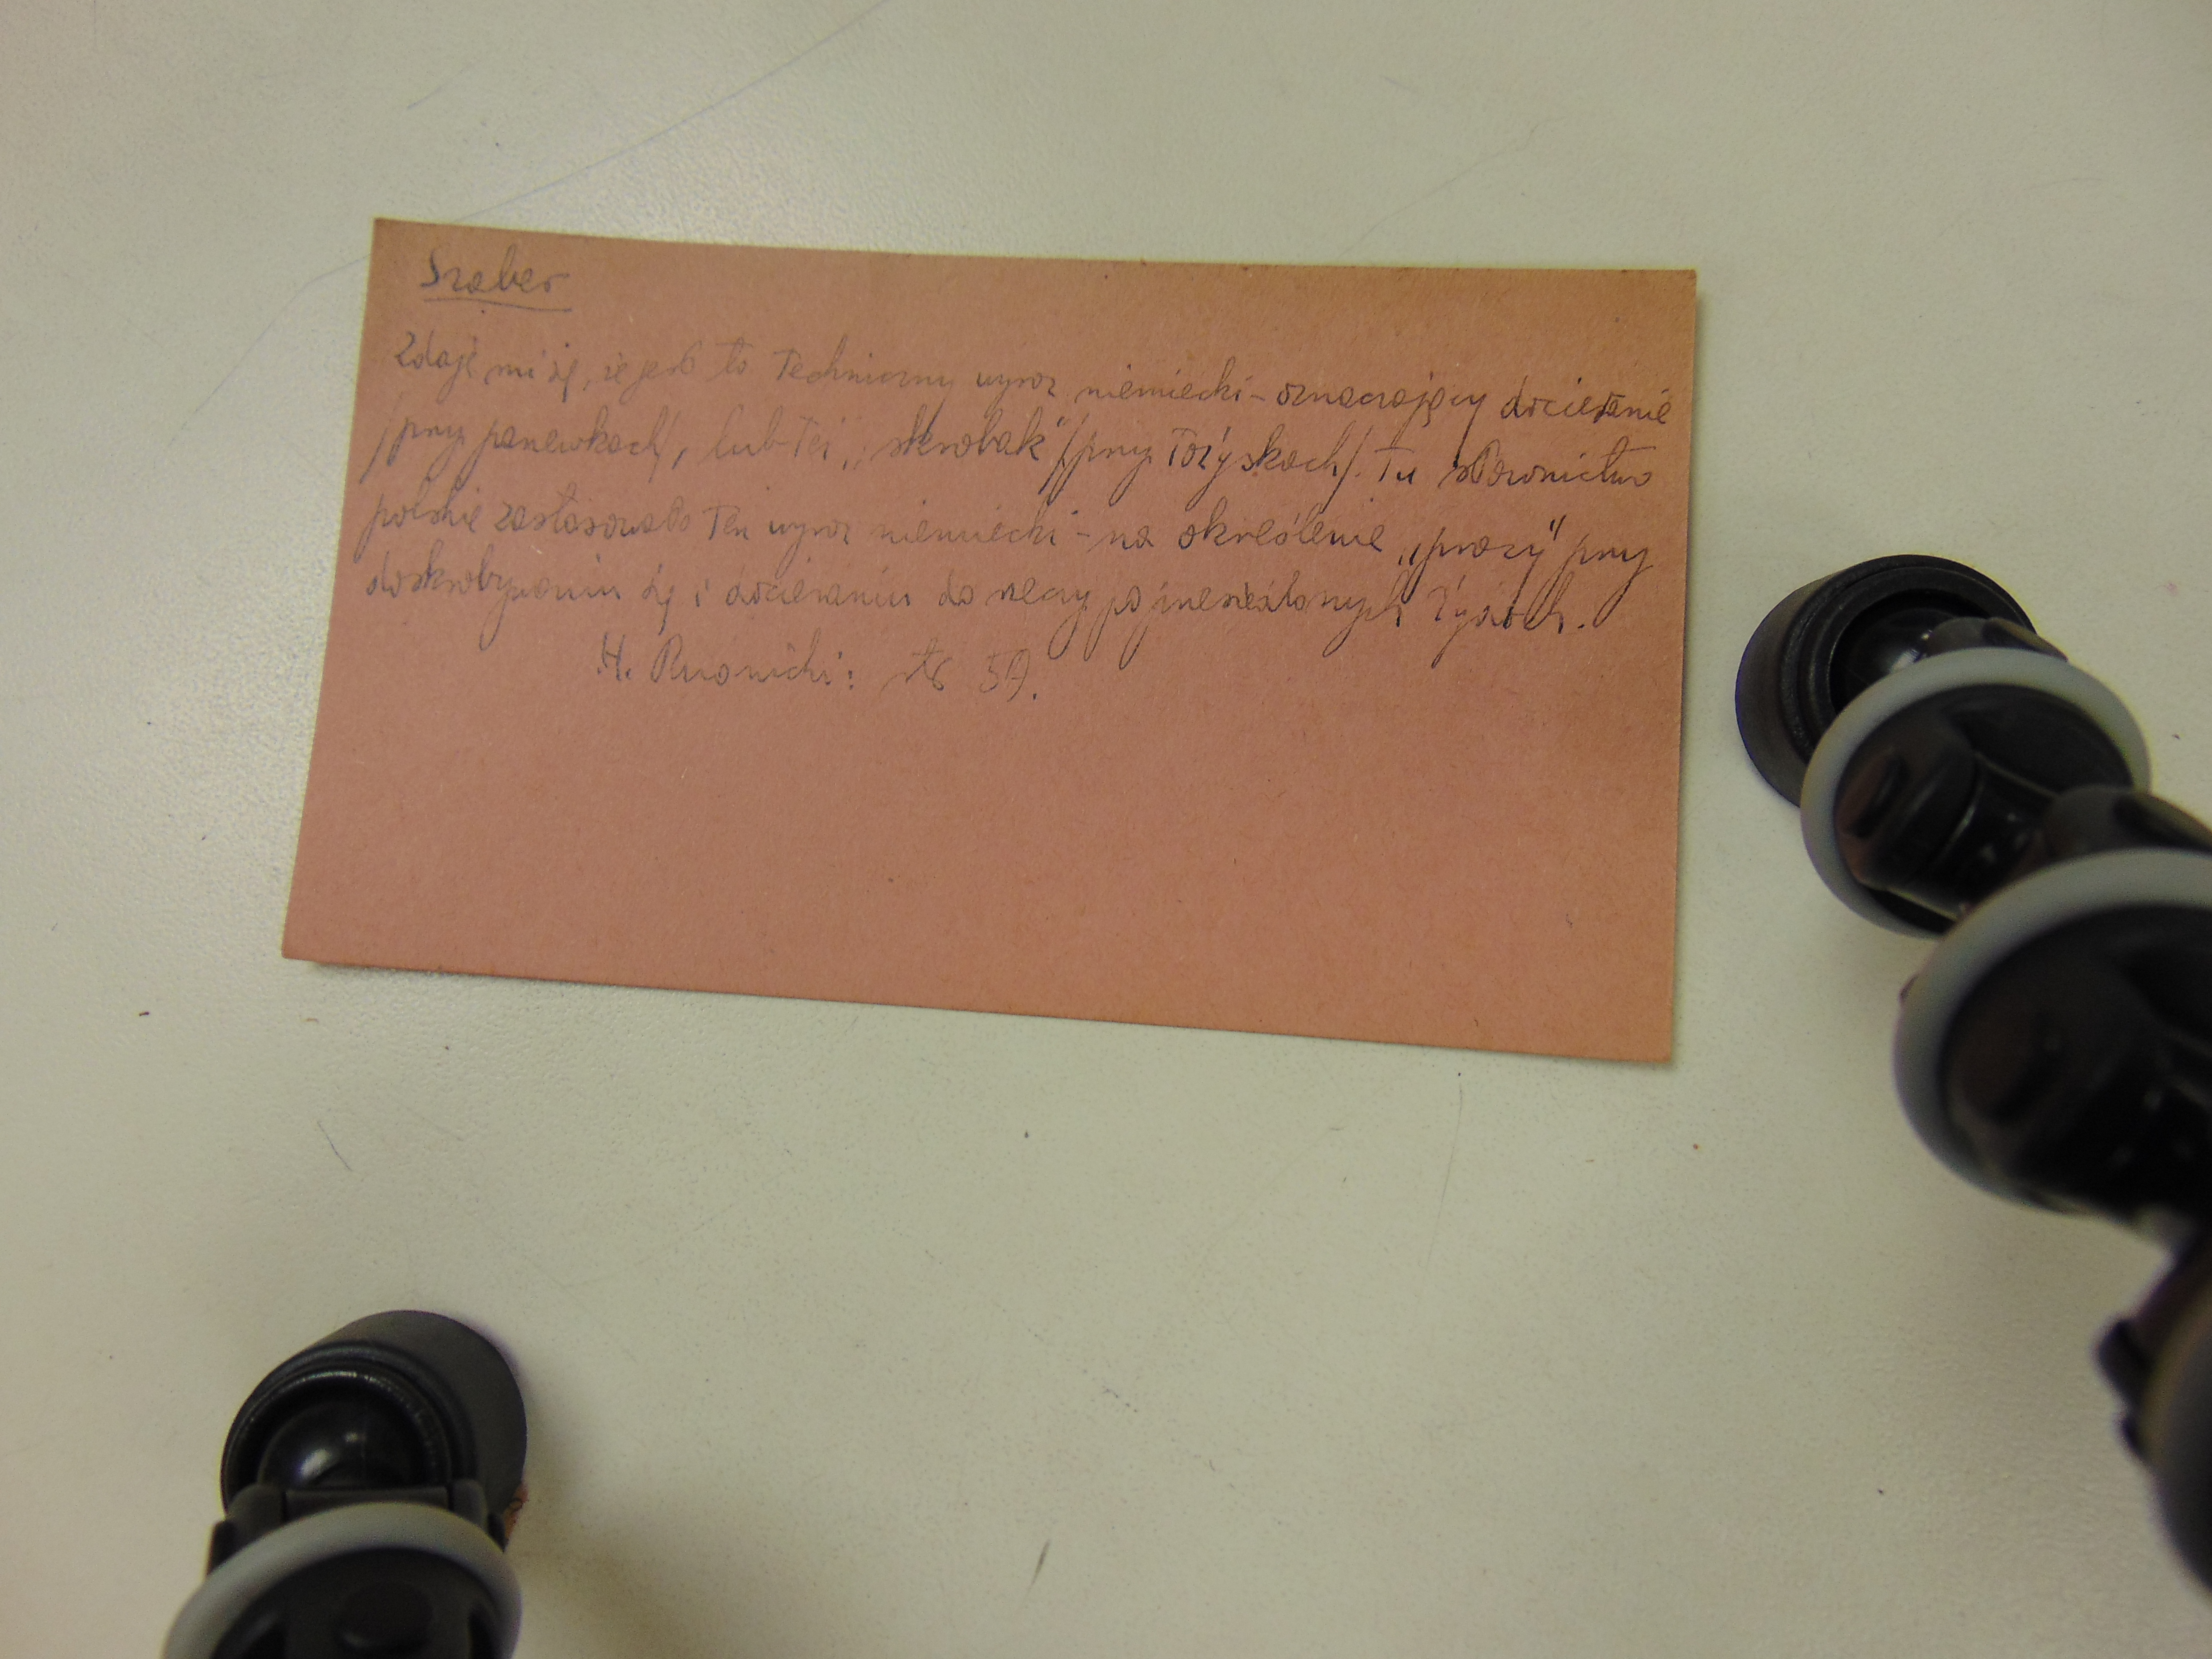 Szaber
Zdaje mi się, że jest to techniczny wyraz niemiecki - oznaczający docieranie
/przy panewkach/, lub też „skrobak" /przy łożyskach/. Tu słownictwo
polskie zastosowało ten wyraz niemiecki - na określenie „pracy" przy
doskrobywaniu się i docieraniu do rzeczy po żydach.
H. str 59.